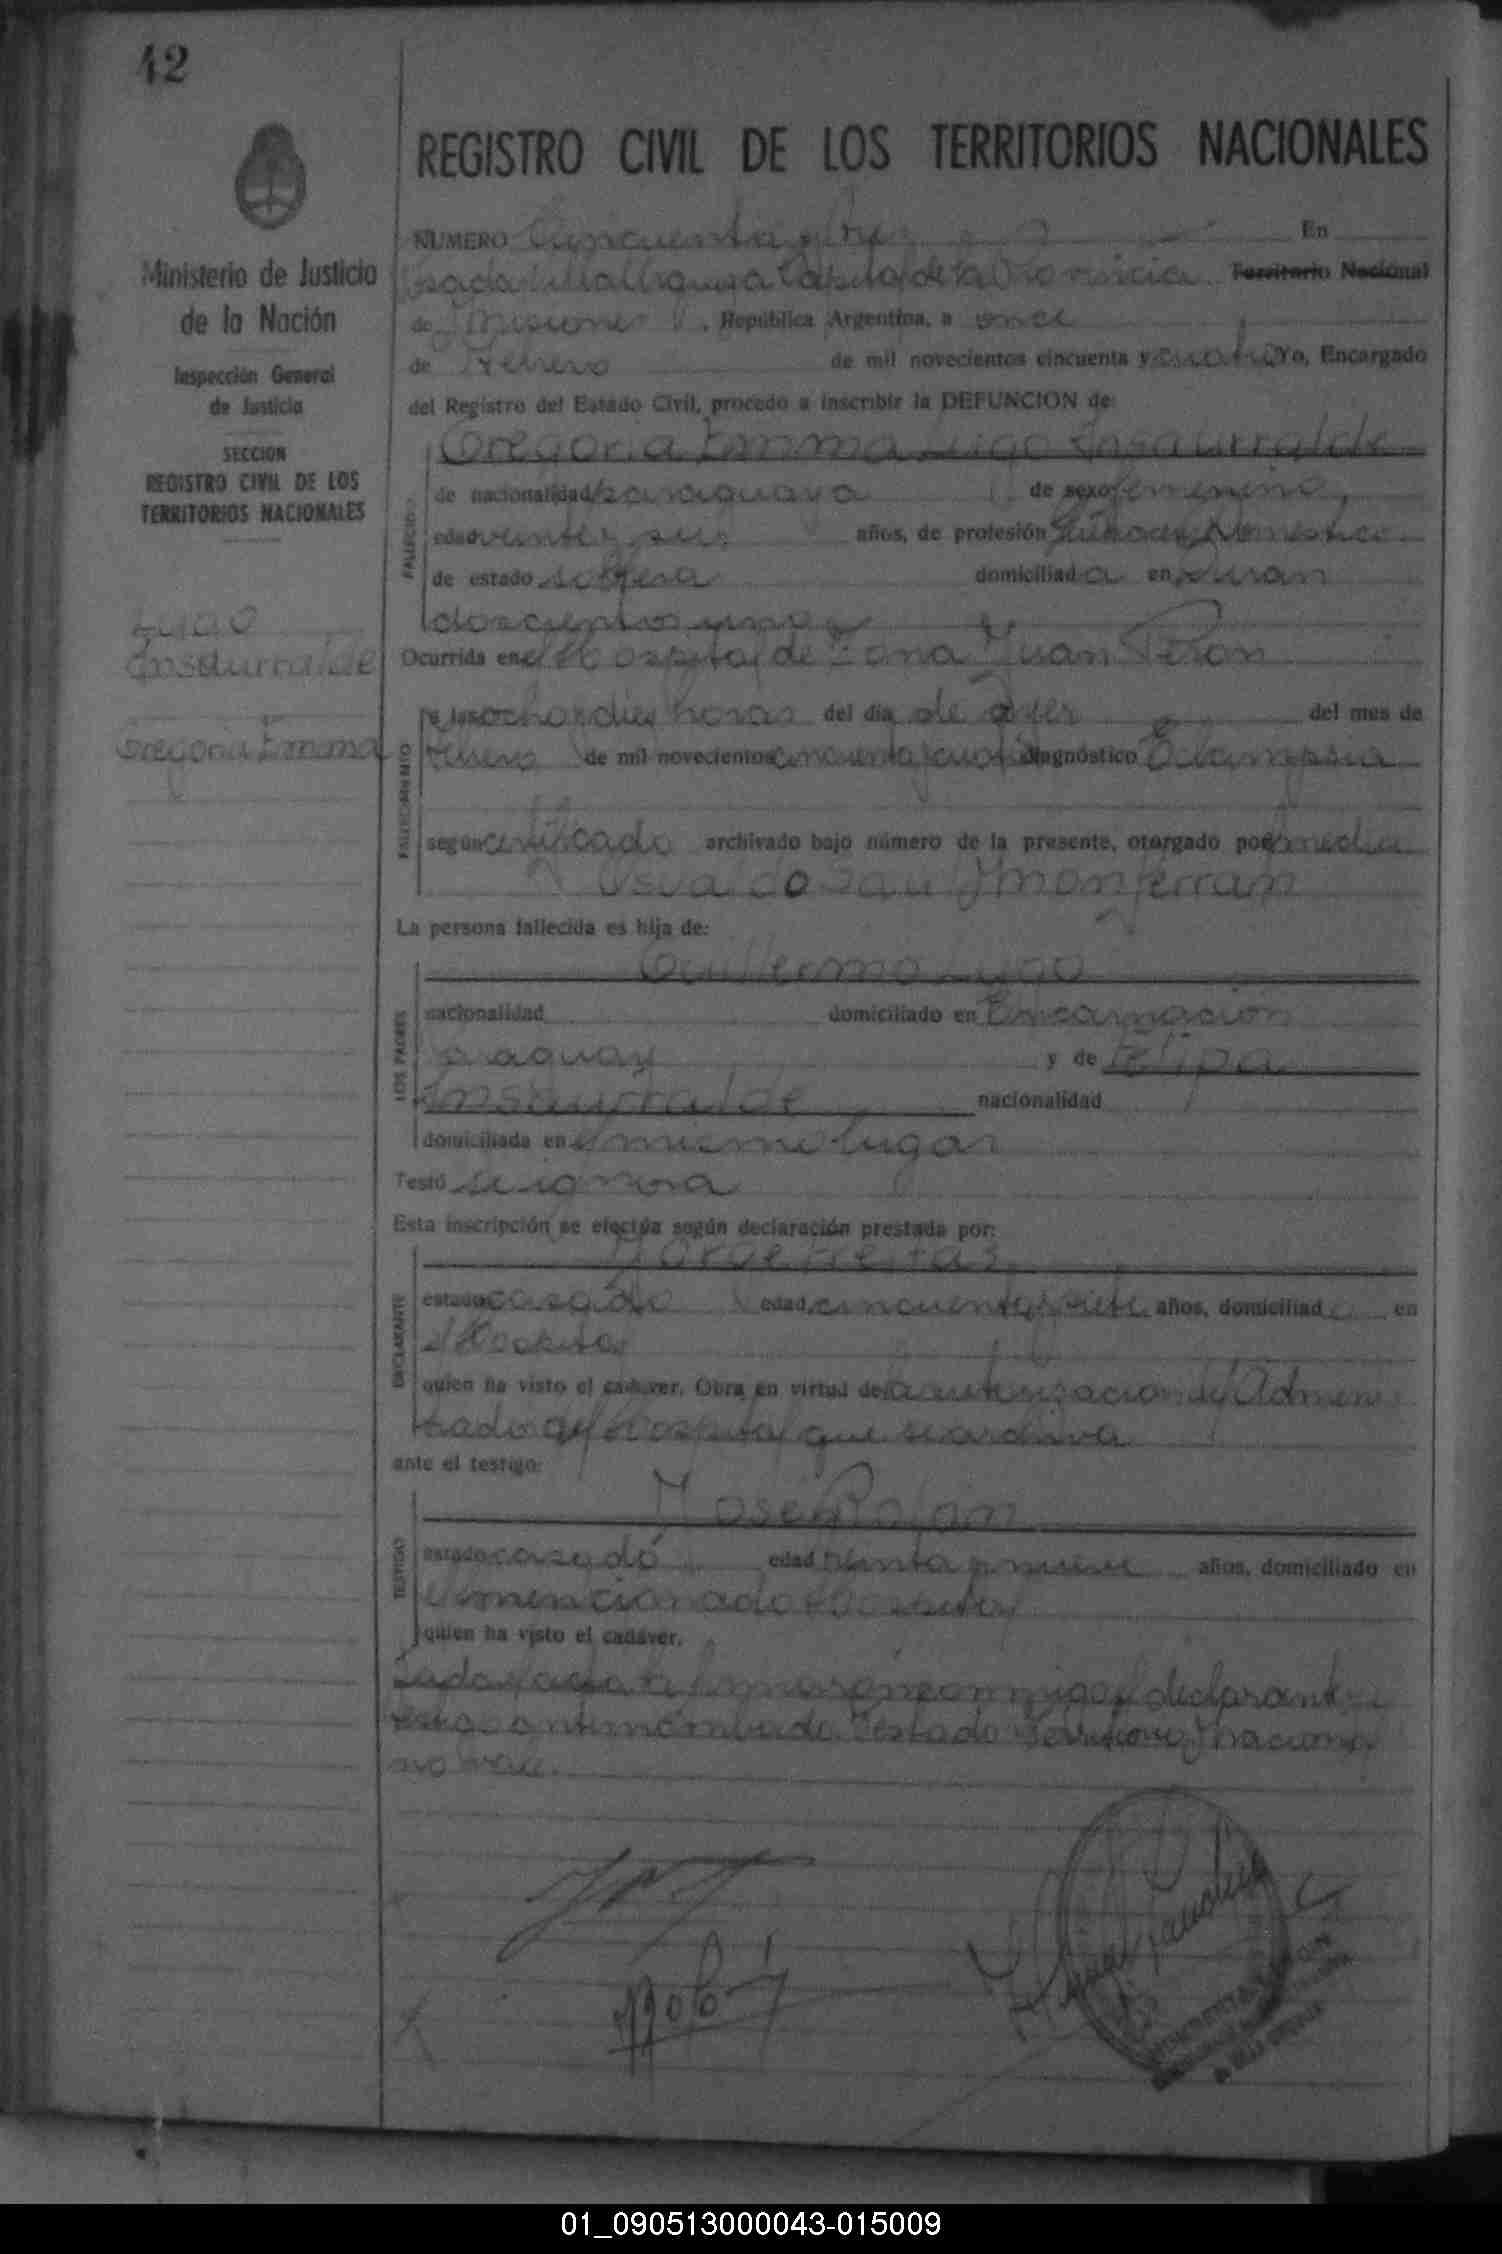 42
REGISTRO CIVIL DE LOS TERRITORIOS NACIONALES
Ministerio de Justicia
de la Nación
Inspección General
de Justicia
SECCION
REGISTRO CIVIL DE LOS
TERRITORIOS NACIONALES
Lugo
Insaurralde
Gregoria Emma
NUMERO Cincuenta y tres En
Posadas Villa Urquiza Capital de la Provincia Territorio Nacional
de Misiones, República Argentina, a once
de Febrero de mil novecientos cincuenta y cuatro Yo, Encargado
del Registro del Estado Civil, procedo a inscribir la DEFUNCION de:
Gregoria Emma Lugo Insaurralde
FALLECIDO
de nacionalidad paraguaya de sexo femenino,
edad veinte y seis años, de profesión Quehacer Doméstico
de estado soltera domiciliada en
doscientos uno
Ocurrida en el Hospital de Zona Juan Perón
FALLECIMIENTO
a las ocho y diez horas del día de ayer del mes de
Febrero de mil novecientos cincuenta y cuatro diagnóstico Eclampsia
según certificado archivado bajo número de la presente, otorgado por el médico
Osvaldo Saul Monferran
La persona fallecida es hija de:
LOS PADRES
Guillermo Lugo
nacionalidad domiciliado en Encarnación
Paraguay y de Felipa
Insaurralde nacionalidad
domiciliada en el mismo lugar
Testó se ignora
Esta inscripción se efectúa según declaración prestada por:
DECLARANTE
Jorge Freitas
estado casado edad cincuenta y siete años, domiciliado en
el Hospital
quien ha visto el cadaver. Obra en virtud de la autorización del
del Hospital que se archiva
ante el testigo:
TESTIGO
José Rolón
estado casado edad treinta y nueve años, domiciliado en
el mencionado Hospital
quien ha visto el cadáver.
Leída el acta la firmaron conmigo el declarante y
testigo antenombrado. Testado Territorio Nacional
no vale.
01_090513000043-015009